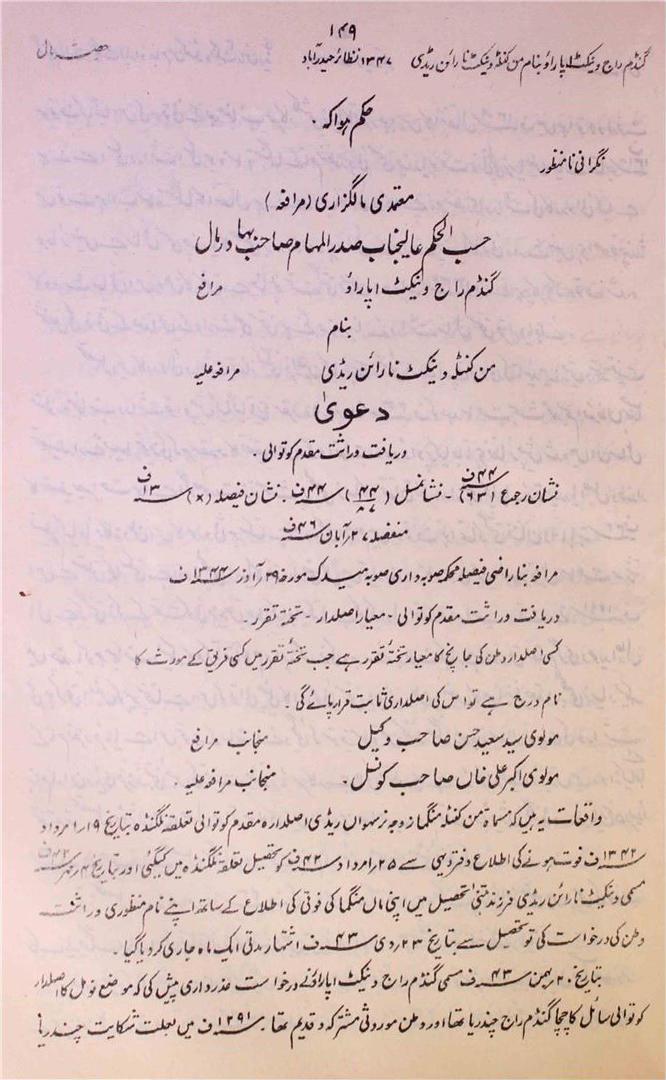 ۱۴۹
گنڈم راج وینکٹ اپاراؤ بنام من کنٹلہ وینکٹ نارائن ریڈی ۱۳۴۷ نظائر حیدرآباد حصہ مال
حکم ہوا کہ۔
نگرانی نامنظور
معتمدی مالگزاری (مرافعہ)
حسب الحکم عالیجناب صدر المہام صاحب بہادر مال
گنڈم راج وینکٹ اپاراؤ مرافع
بنام
من کنٹلہ وینکٹ نارائن ریڈی مرافعہ علیہ
دعویٰ
دریافت وراثت مقدم کوتوالی۔
نشان رجوع (۶۳۱) ۴۴ف - نشانمثل (۴۴/۸۷) ۴۴ف - نشان فیصلہ (×) ۱۳ف
منفصلہ ۲۷؍آبان ۴۶ف
مرافعہ بناراضی فیصلہ محکمہ صوبہ داری صوبہ میدک مورخہ ۲۹؍آذر ۱۳۴۴ف
دریافت وراثت مقدم کوتوالی - معیار اصلدار - تختہ تقرر۔
کسی اصلدار وطن کی جانچ کا معیار تختۂ تقرر ہے جب تختۂ تقرر میں کسی فریق کے مورث کا
نام درج ہے تو اس کی اصلداری ثابت قرار پائے گی۔
مولوی سید سعید حسن صاحب وکیل منجانب مرافع
مولوی اکبر علی خاں صاحب کونسل۔ منجانب مرافعہ علیہ۔
واقعات یہ ہیں کہ مسماۃ من کنٹلہ منگما زوجہ نرمہواں ریڈی اصلدارہ مقدم کوتوالی تعلقہ نلگنڈہ بتاریخ ۱۹؍امرداد
۱۳۴۲ف فوت ہونے کی اطلاع دفتر دیہی سے ۲۵؍امرداد ۴۲ف کو تحصیل تعلقہ نلگنڈہ میں کیگئی اور بتاریخ ۴؍مہر ۴۲ف
مسمی وینکٹ نارائن ریڈی فرزند متبنیٰ تحصیل میں اپنی ماں منگما کی فوتی کی اطلاع کے ساتھ اپنے نام منظوری وراثت
وطن کی درخواست کی تو تحصیل سے بتاریخ ۲۳؍دی ۴۳ف اشتہار مدتی ایک ماہ جاری کردیا گیا۔
بتاریخ ۲۰؍بہمن ۴۳ف مسمی گنڈم راج وینکٹ اپاراؤ نے درخواست عذر داری پیش کی کہ موضع نومل کا اصلدار
کوتوالی سائل کا چچا گنڈم راج چندریا تھا اور وطن موروثی مشترکہ و قدیم تھا۔ ۱۲۹۱ف میں بعلت شکایت چندریا